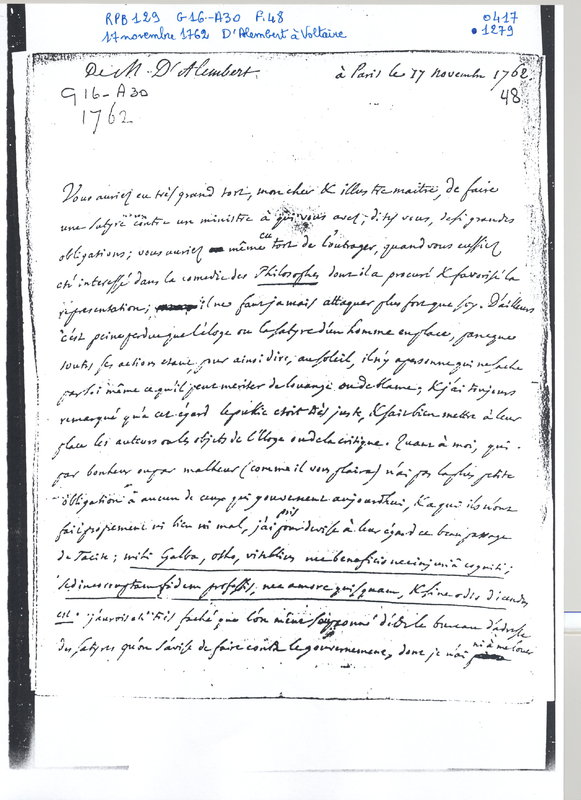 RPB 129 G16-A30 P.48
0417
17 novembre 1762 D'Alembert à Voltaire
1279
De M. D'Alembert.
à Paris le 17 novembre 1762.
G16-A30
48
1762
Vous auriez eu très grand tort, mon cher & illustre maitre, de faire
une satyre contre un ministre à qui vous avez, dites vous, de si grandes
obligations; vous auriez eu même tort de l'outrager, quand vous eussiez
été interessé dans la comedie des Philosophes dont il a procuré & favorisé la
représentation; il ne faut jamais attaquer plus fort que soy. D'ailleurs
c'est peine perdue que l'éloge ou la satyre d'un homme en place, parceque
toutes ses actions etant, pour ainsi dire, au soleil, il n'y a personne qui ne sache
par soi même ce qu'il peut meriter de louange ou de blame; & j'ai toujours
remarqué qu'à cet égard le public etoit très juste, & sait bien mettre à leur
place les auteurs ou les objets de l'éloge ou de la critique. Quant à moi, qui
par bonheur ou par malheur (comme il vous plaira) n'ai pas la plus petite
obligation à aucun de ceux qui gouvernent aujourdhui, & a qui ils n'ont
fait proprement ni bien ni mal, j'ai pris pour devise à leur égard ce beau passage
de Tacite; mihi Galba, otho, vitellius nec beneficio nec injuriâ cogniti;
sed incorruptam fidem professis, nec amore quisquam, & sine odio dicendus
est. j'aurois été très faché que l'on même soupçonné d'être le bureau d'adresse
des satyres qu'on s'avise de faire contre le gouvernement, dont je n'ai ni à me louer